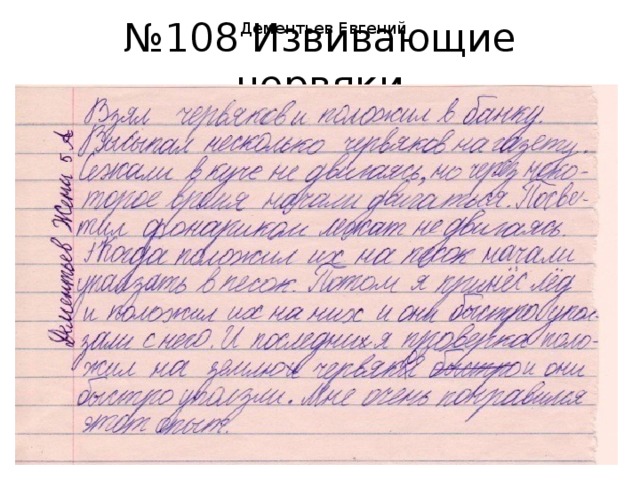 Дементьев Евгений
№108 Извивающие
червяки
Дементьев Жены 5 А
Взял червяков и положил в банку.
Высыпал несколько червяков на газету.
Лежали в куче не двигаясь, но через неко-
торое время начали двигаться. Посве-
тил фонариком лежат не двигаясь.
Когда положил их на песок начали
уползать в песок. Потом я принёс лёд
и положил их на них и они быстро упол-
зали с него. И последних я проверка поло-
жил на землю червяка и они
быстро уползли. Мне очень понравился
этот опыт.